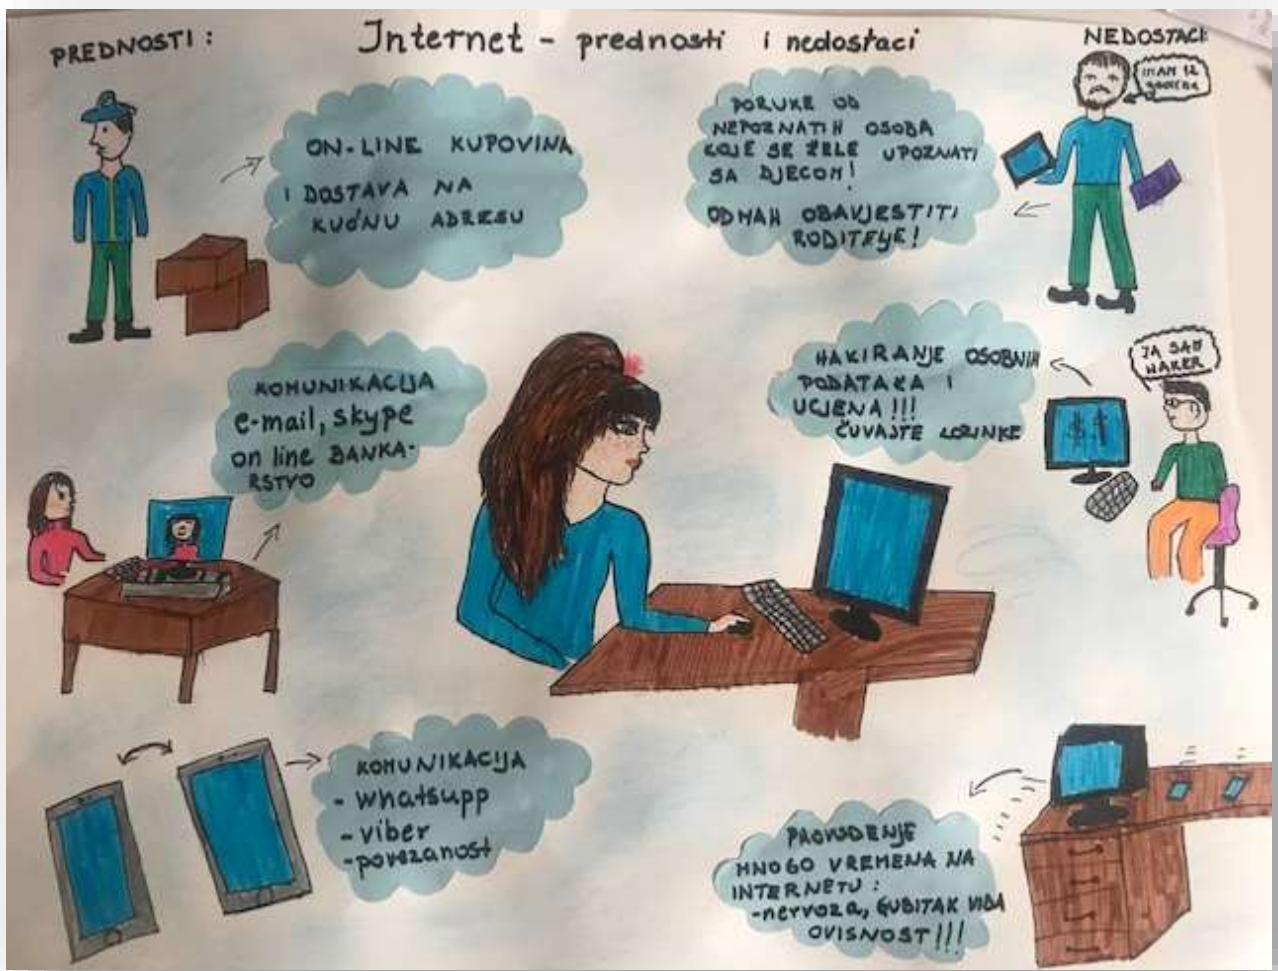 PREDNOSTI :
Internet - prednosti i nedostaci
NEDOSTACI:
ON-LINE KUPOVINA
I DOSTAVA NA
KUĆNU ADRESU
PORUKE OD
NEPOZNATIH OSOBA
KOJE SE ŽELE UPOZNATI
SA DJECOM!
ODMAH OBAVJESTITI
RODITELJE!
IMAM 12
GODINA
KOMUNIKACIJA
e-mail, skype
on line BANKA-
RSTVO
HAKIRANJE OSOBNIH
PODATAKA I
UCJENA!!!
ČUVAJTE LOZINKE
JA SAM
HAKER
$ $
KOMUNIKACIJA
- whatsupp
- viber
- povezanost
PROVOĐENJE
MNOGO VREMENA NA
INTERNETU :
- nervoza, GUBITAK VIDA
OVISNOST!!!